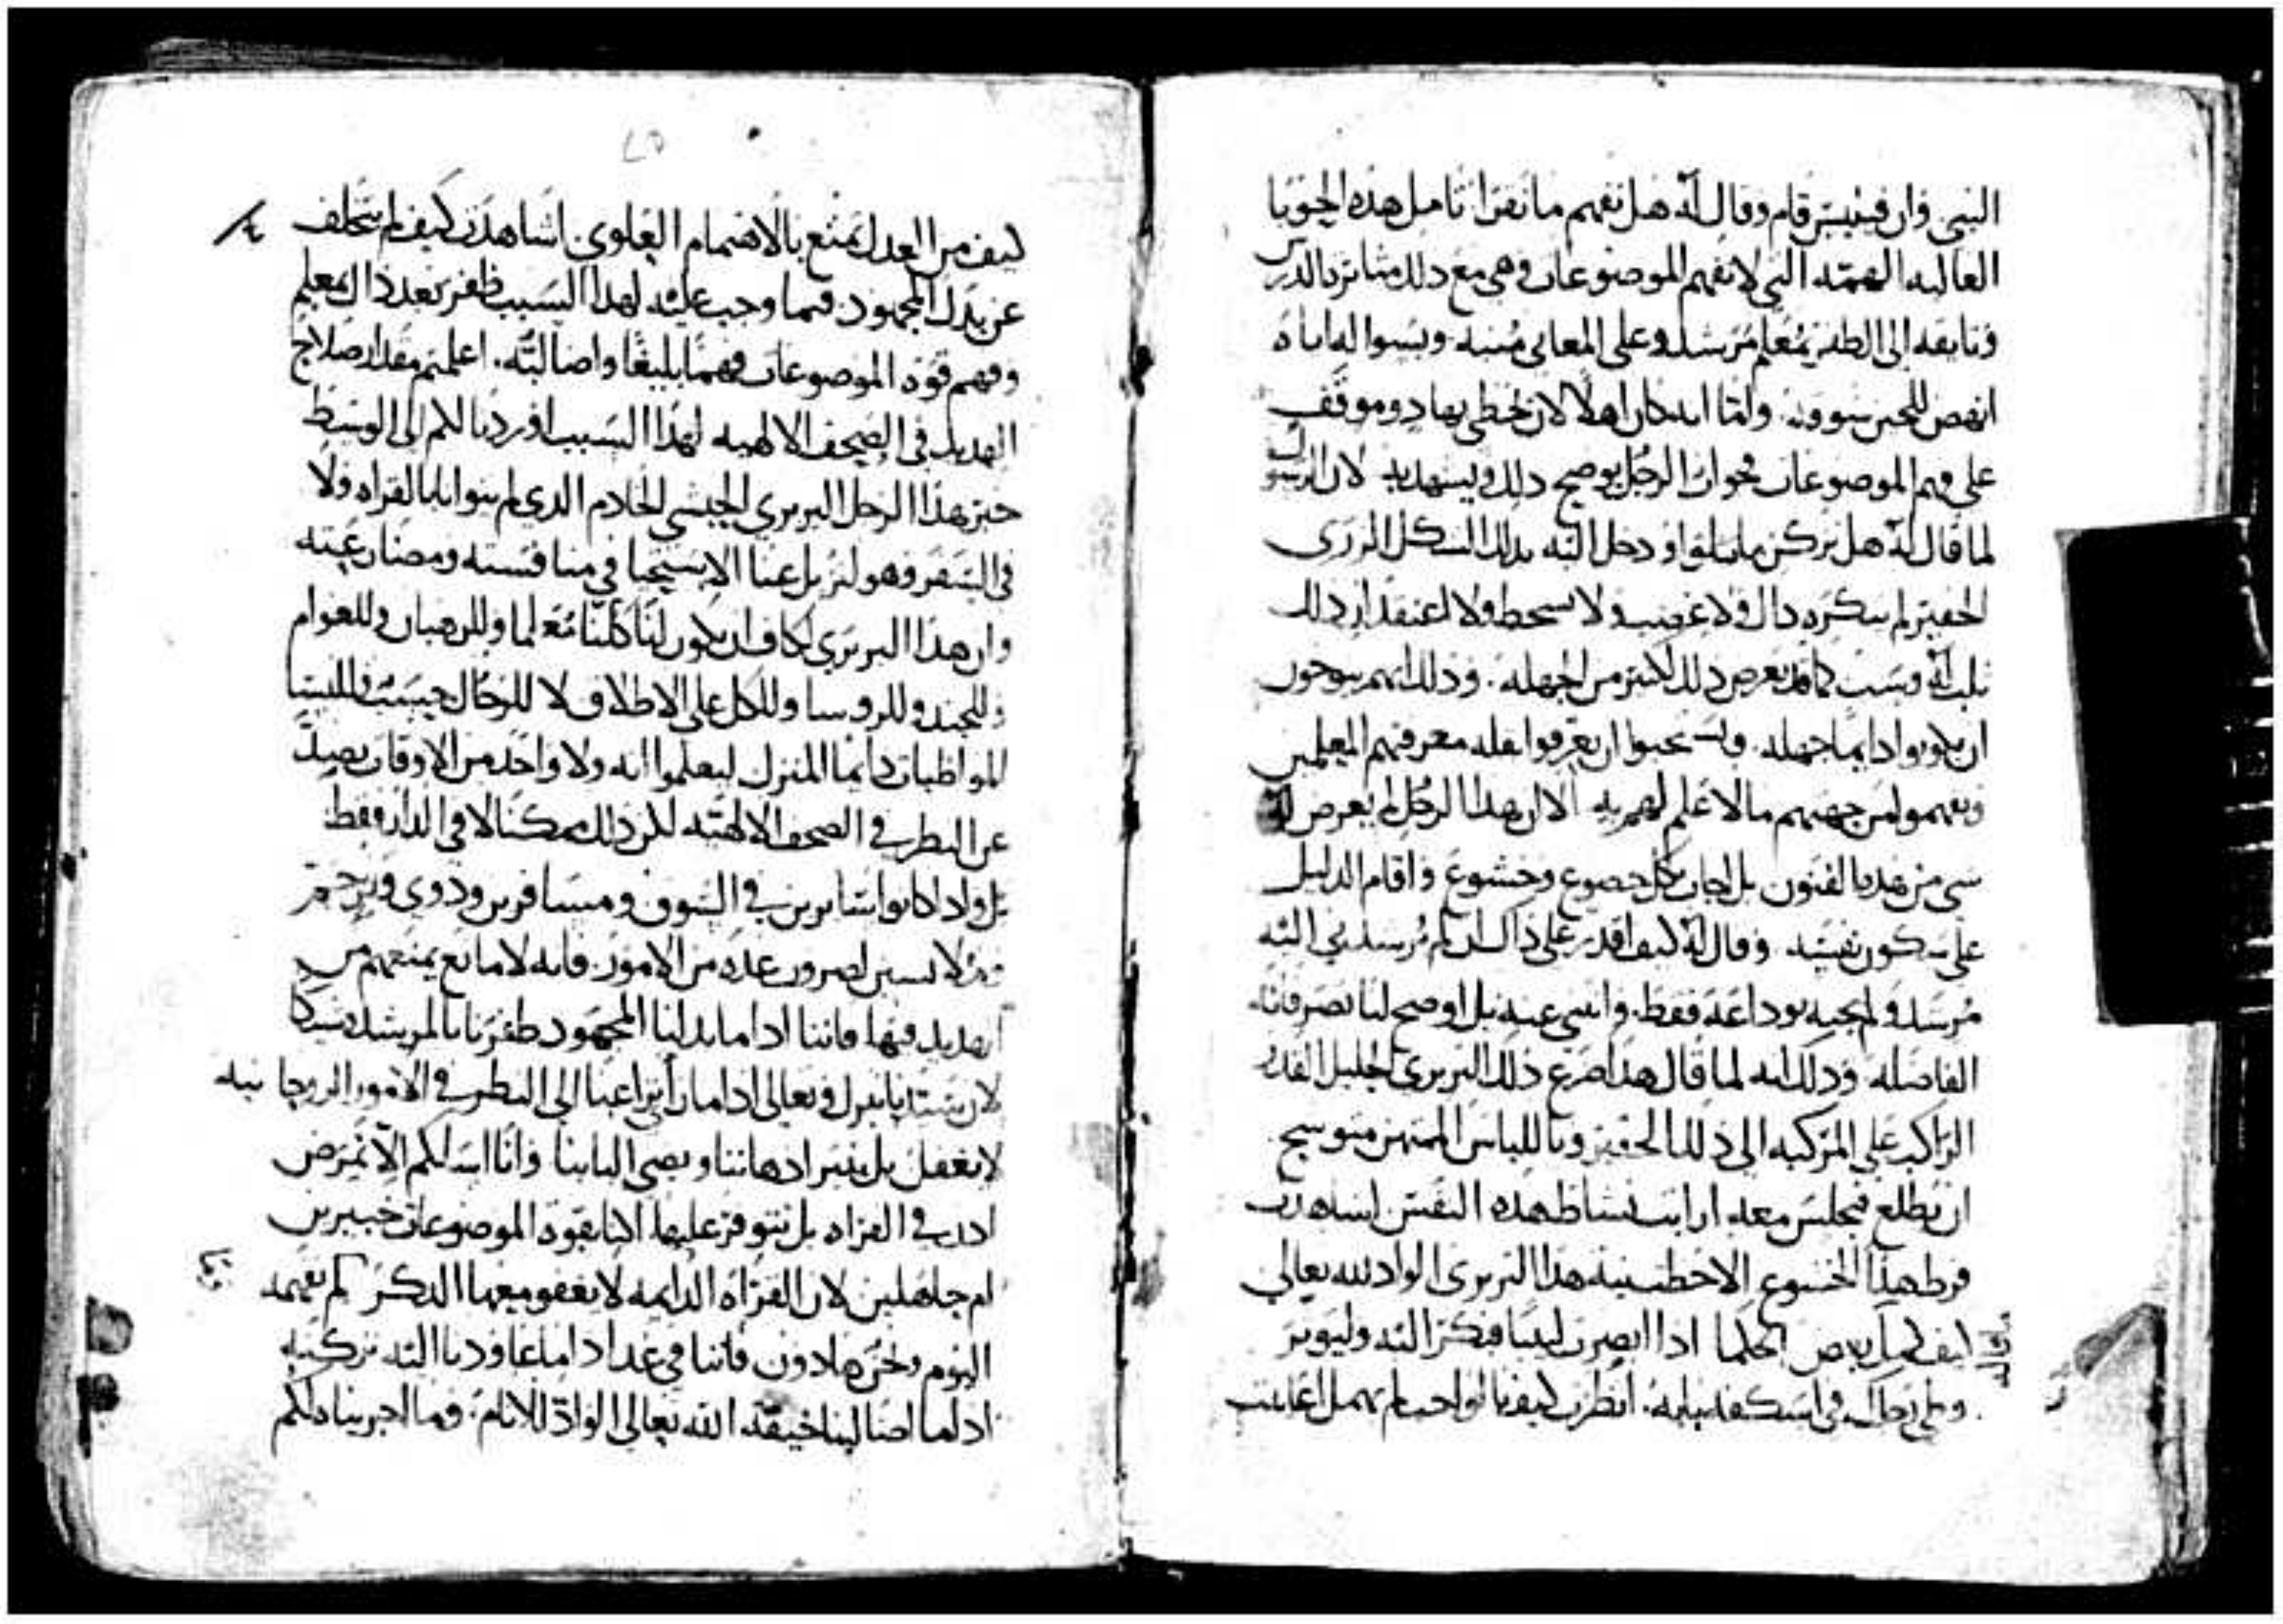 النبي وان فيلبس قام وقال له هل تفهم ما تقرا تامل هذه الحوبا
العاليه الهمه التي لا تفهم الموضوعات وهي مع ذلك مثابره بالدرس
وتابعه الى الظفر بمعلم مرشد وعلى المعاني منبه وبسواله اياه
انهض للحين سووه وامّا انه كان اهلًا لان يحظى بهادٍ وموقف
على فهم الموضوعات فجواب الرجل يوضح ذلك ويشهد به لان الرسول
لما قال له هل تركن ما تتلوا ودخل اليه بذلك الشكل المزرى
الحقير لم يتكره ذاك ولا غضب ولا سخط ولا اعتقد ان ذلك
ثلب له وسب كما قد يعرض ذلك لكثير من الجهله وذلك انهم يتوخون
ان يكونوا دايمًا جهله ويستحيوا ان يعرفوا قله معرفتهم المعلمين
ويفهموا من جهتهم ما لا علم لهم به الا ان هذا الرجل لم يعرض له
شي من هذه الفنون بل اجاب بكل خضوع وخشوع واقام الدليل
على سكون نفسه وقال له كيف اقدر على ذاك ان لم يرشدني اليه
مرشد ولم يجبه بوداعه فقط وانثنى عنه بل اوضح لنا تصرفاته
الفاضله وذلك انه لما قال هذا ضرع ذلك البربري الجليل القدر
الراكب على المركبه الى ذلك الحقير وباللباس الممتهن متوشح
ان يطلع فيجلس معه ارايت نشاط هذه النفس اشاهدت
فرط هذا الخشوع الا حظت نيه هذا البربري الواد لله تعالى
كيف كمل بعض الحكما اذا ابصرت لبيبًا فبكر اليه وليوثر
وطي رجلك في اسكفه بابه انظرت كيف بالواجب لم يهمل اعاينت
كيف من العدل تمتع بالاهتمام العلوي اشاهدت كيف لم يتخلف
عن بذل المجهود فيما وجب عليه لهذا السبب ظفر بعد ذاك بمعلم
وفهم قوه الموضوعات فهمًا بليغًا واضا لبّه اعلمتم مقدار صلاح
الهديد في الصحف الالهيه لهذا السبب اوردنا لكم الى الوسط
خبر هذا الرجل البربري الحبشي الخادم الذي لم يتوانا بالقراه ولا
في السفر فهو ليزيل عنا الاستحيا في منافسته ومضارعته
وان هذا البربري لكاف ان يكون لنا كلنا معلما وللرهبان وللعوام
وللجند وللروسا وللكل على الاطلاق لا للرجال حسب وللنسا
المواظبات دايمًا المنزل ليعلموا انه ولا واحد من الاوقات يصد
عن النظر في الصحف الالهيه لكن ذلك ممكنا لا في الدار فقط
بل واذا كانوا سايرين في السوق ومسافرين وذوي
لصروب عده من الامور فانه لا مانع يمنعهم من
الهديد فيها فاننا اذا ما بذلنا المجهود ظفرنا بالمرشد وشيكا
لان سيدنا تبارك وتعالى اذا ما راى راغبا الى النظر في الامور الروحانيه
لا يغفل بل ينير اذهاننا ويضي البابنا وانا اسالكم الّا نمرض
اذن في القراه بل نتوفر عليها اكنا بقوه الموضوعات خبيرين
ام جاهلين لان القراه الدايمه لا يعفو معها الذكر لم نفهمه
اليوم ونحن هادون فاننا في غد اذا ما عاودنا اليه نركنه
اذا ما اضا لبنا خيفه الله تعالى الوادّ للانام وما اجريناه لكم